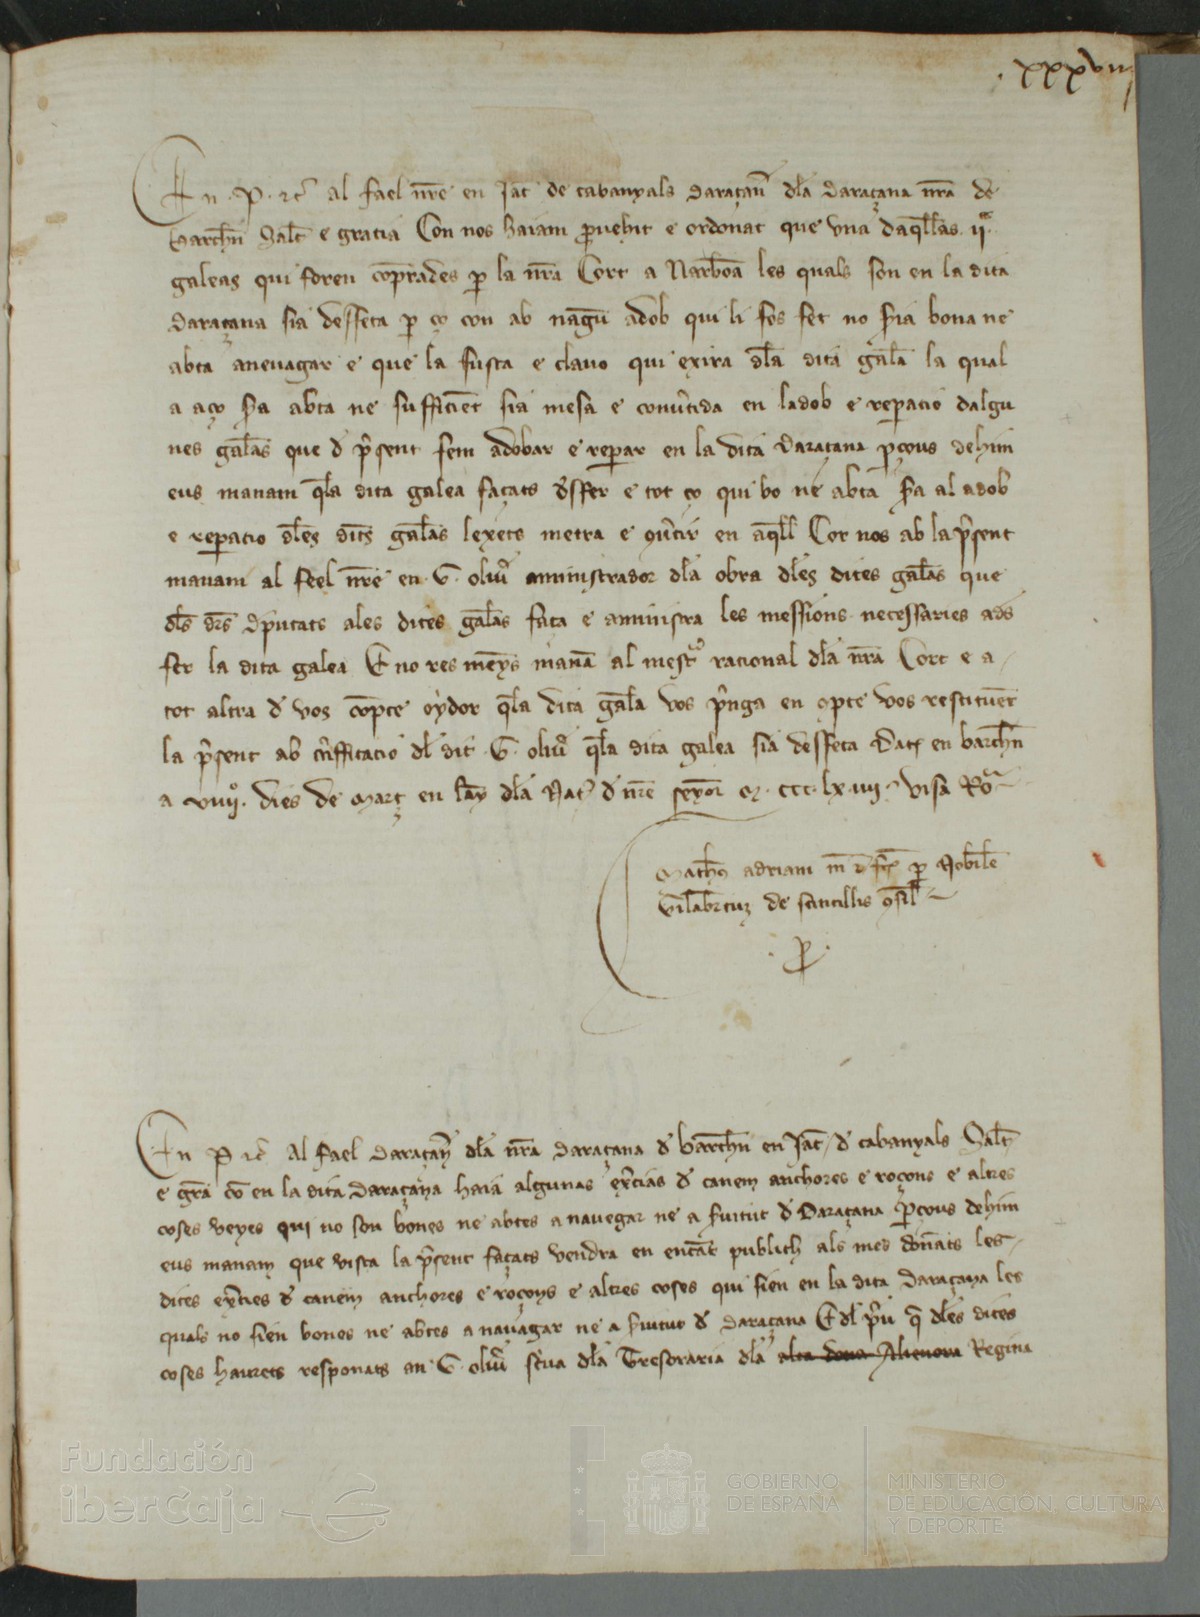 xxxvii
En .P. etc. Al fael nre en Jac de cabanyals daraçan dla daraçana nra de
Barchn Salt e gracia Con nos haiam provehit e ordonat que una daqllas .ij.
galeas qui foren compradés p la nra Cort a Narbona les quals son en la dita
daraçana sia desfeta p ço con ab nagu adob qui li fos fet no sia bona ne
abta anevagar e que la fusta e clavo qui exira dla dita gala la qual
a aço sia abta ne sufficient sia mesa e convtida en ladob e repacio dalgu
nes galas que d psent fem adobar e repar en la dita daraçana pçous dehim
eus manam qla dita galea façats dsfer e tot ço qui bo ne abta sia al adob
e repacio dles dits galas lexets metra e convtir en aqll Cor nos ab la psent
manam al feel nre en .G. oliv aministrador dla obra dles dites galas que
dls drs dputats ales dites galas faça e aministra les messions necessaries ads
fer la dita galea E no res menys manam al mestr racional dla nra Cort e a
tot altra d vos compte oydor qla dita gala vos pnga en compte vos restituent
la psent ab ctifficacio dl dit .G. oliv qla dita galea sia desfeta Dat en barchn
a viiij. dies de Març en lay dla Nat d nre senyor M.ccc.lx.iiij. visa Ro
Matheus adriani m d fc p Nobile
Vilabtuz de scintillis consil
.P.
En P. etc. Al fael daraçan dla nra daraçana d barchn en Jac d cabanyals Salt
e gra Com en la dita daraçana haia algunas exrcias d canem anchores e roçons e altres
coses veyes qui no son bones ne abtes a navegar ne a svitut d daraçana Pçous dehim
eus manam que vista la psent façats vendra en encant publich als mes donants les
dites exrcies d canem anchores e roçons e altres coses qui sien en la dita daraçana les
quals no sien bones ne abtes a navagar ne a svitut d daraçana E dl preu q dles dites
coses haurets responats an .G. oliv scva dla Tresoraria dla alta dona Alienora Regina
Fundación
iberCaja
GOBIERNO
DE ESPAÑA
MINISTERIO
DE EDUCACIÓN, CULTURA
Y DEPORTE